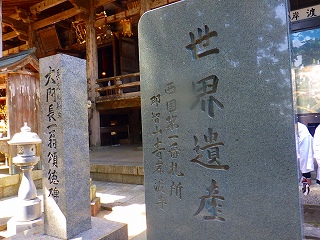 世界遺産
西国第一番札所
那智山青岸渡寺
大門長一翁頌徳碑
岸渡